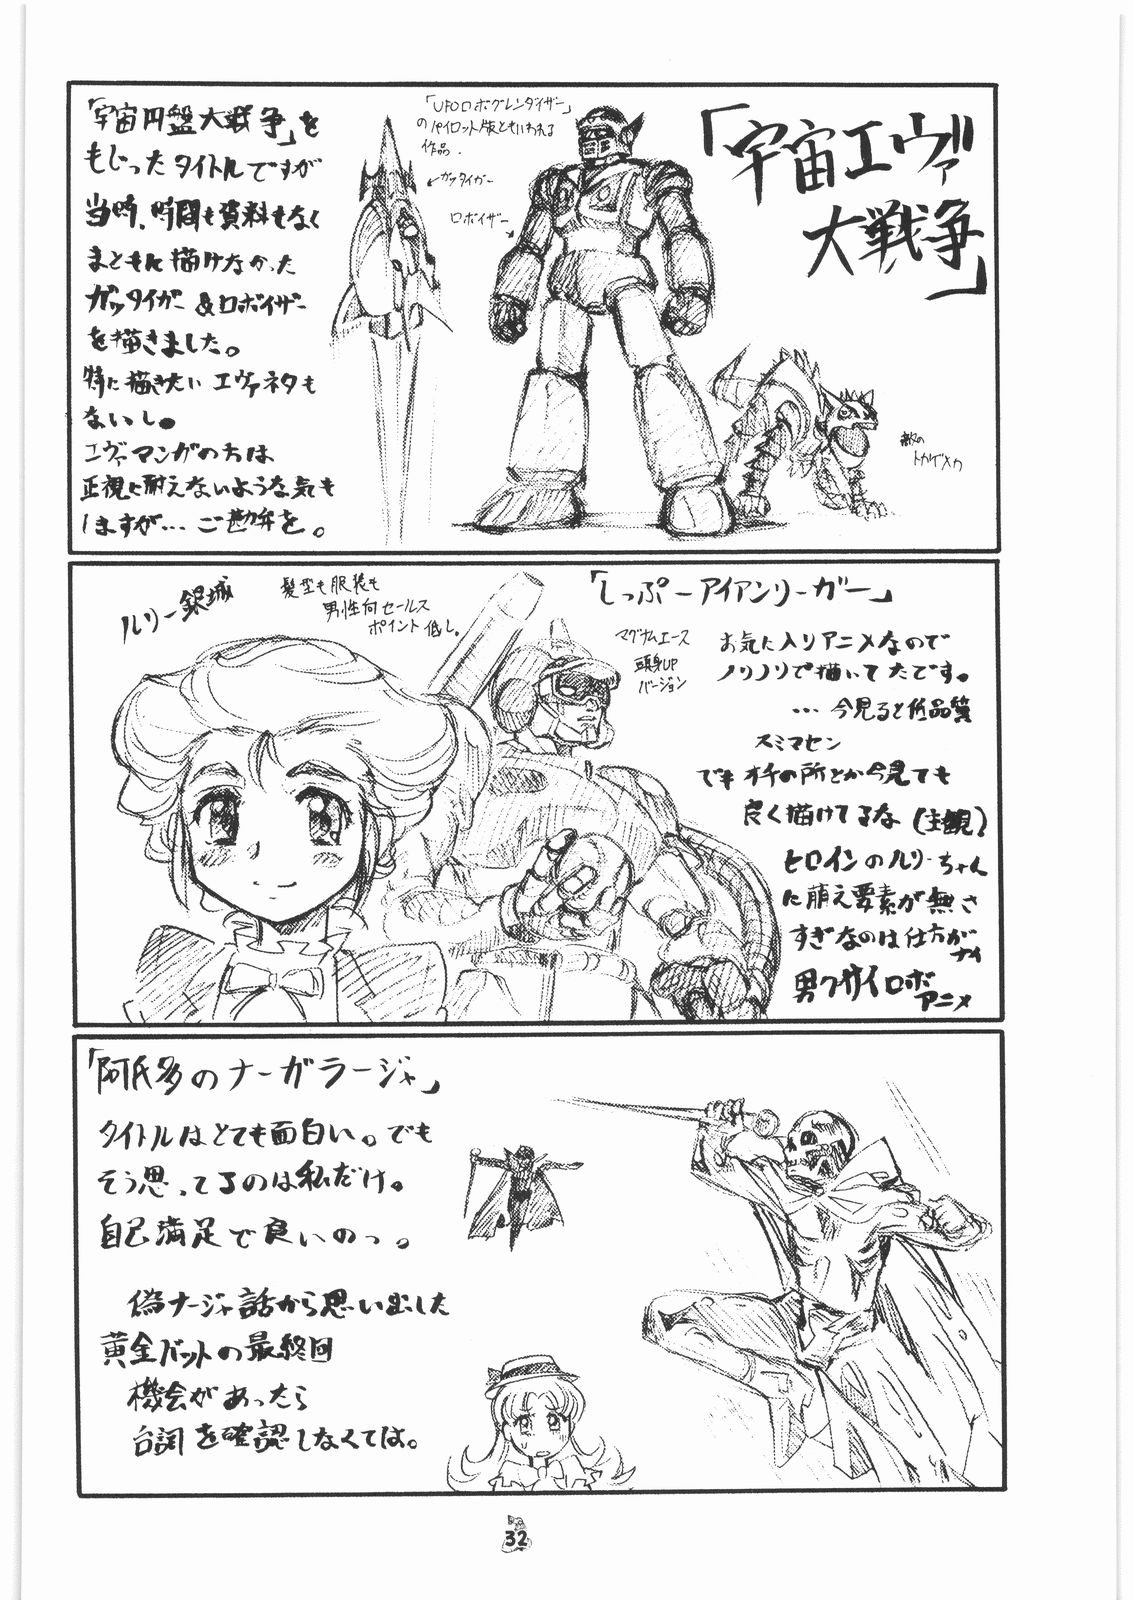 「宇宙エヴァ
大戦争」
「宇宙円盤大戦争」を
もじったタイトルですが
当時、時間も資料もなく
まともに描けなかった
ガッタイガー&ロボイザー
を描きました。
特に描きたいエヴァネタも
ないし。
エヴァマンガの方は
正視に耐えないような気も
しますが…ご勘弁を。
「UFOロボグレンダイザー」
のパイロット版ともいわれる
作品.
ガッタイガー
ロボイザー
敵の
トカゲメカ
「しっぷーアイアンリーガー」
お気に入りアニメなので
ノリノリで描いてたです。
…今見ると作品簧
スミマセン
でもオチの所とか今見ても
良く描けてるな(主観)
ヒロインのルリーちゃん
に萌え要素が無さ
すぎなのは仕方が
ナイ
男クサイロボ
アニメ
ルリー銀城
髪型も服装も
男性向セールス
ポイント低し。
マグナムエース
頭身UP
バージョン
「阿氏多のナーガラージャ」
タイトルはとても面白い。でも
そう思ってるのは私だけ。
自己満足で良いのっ。
偽ナージャ話から思い出した
黄金バットの最終回
機会があったら
台詞を確認しなくては。
32